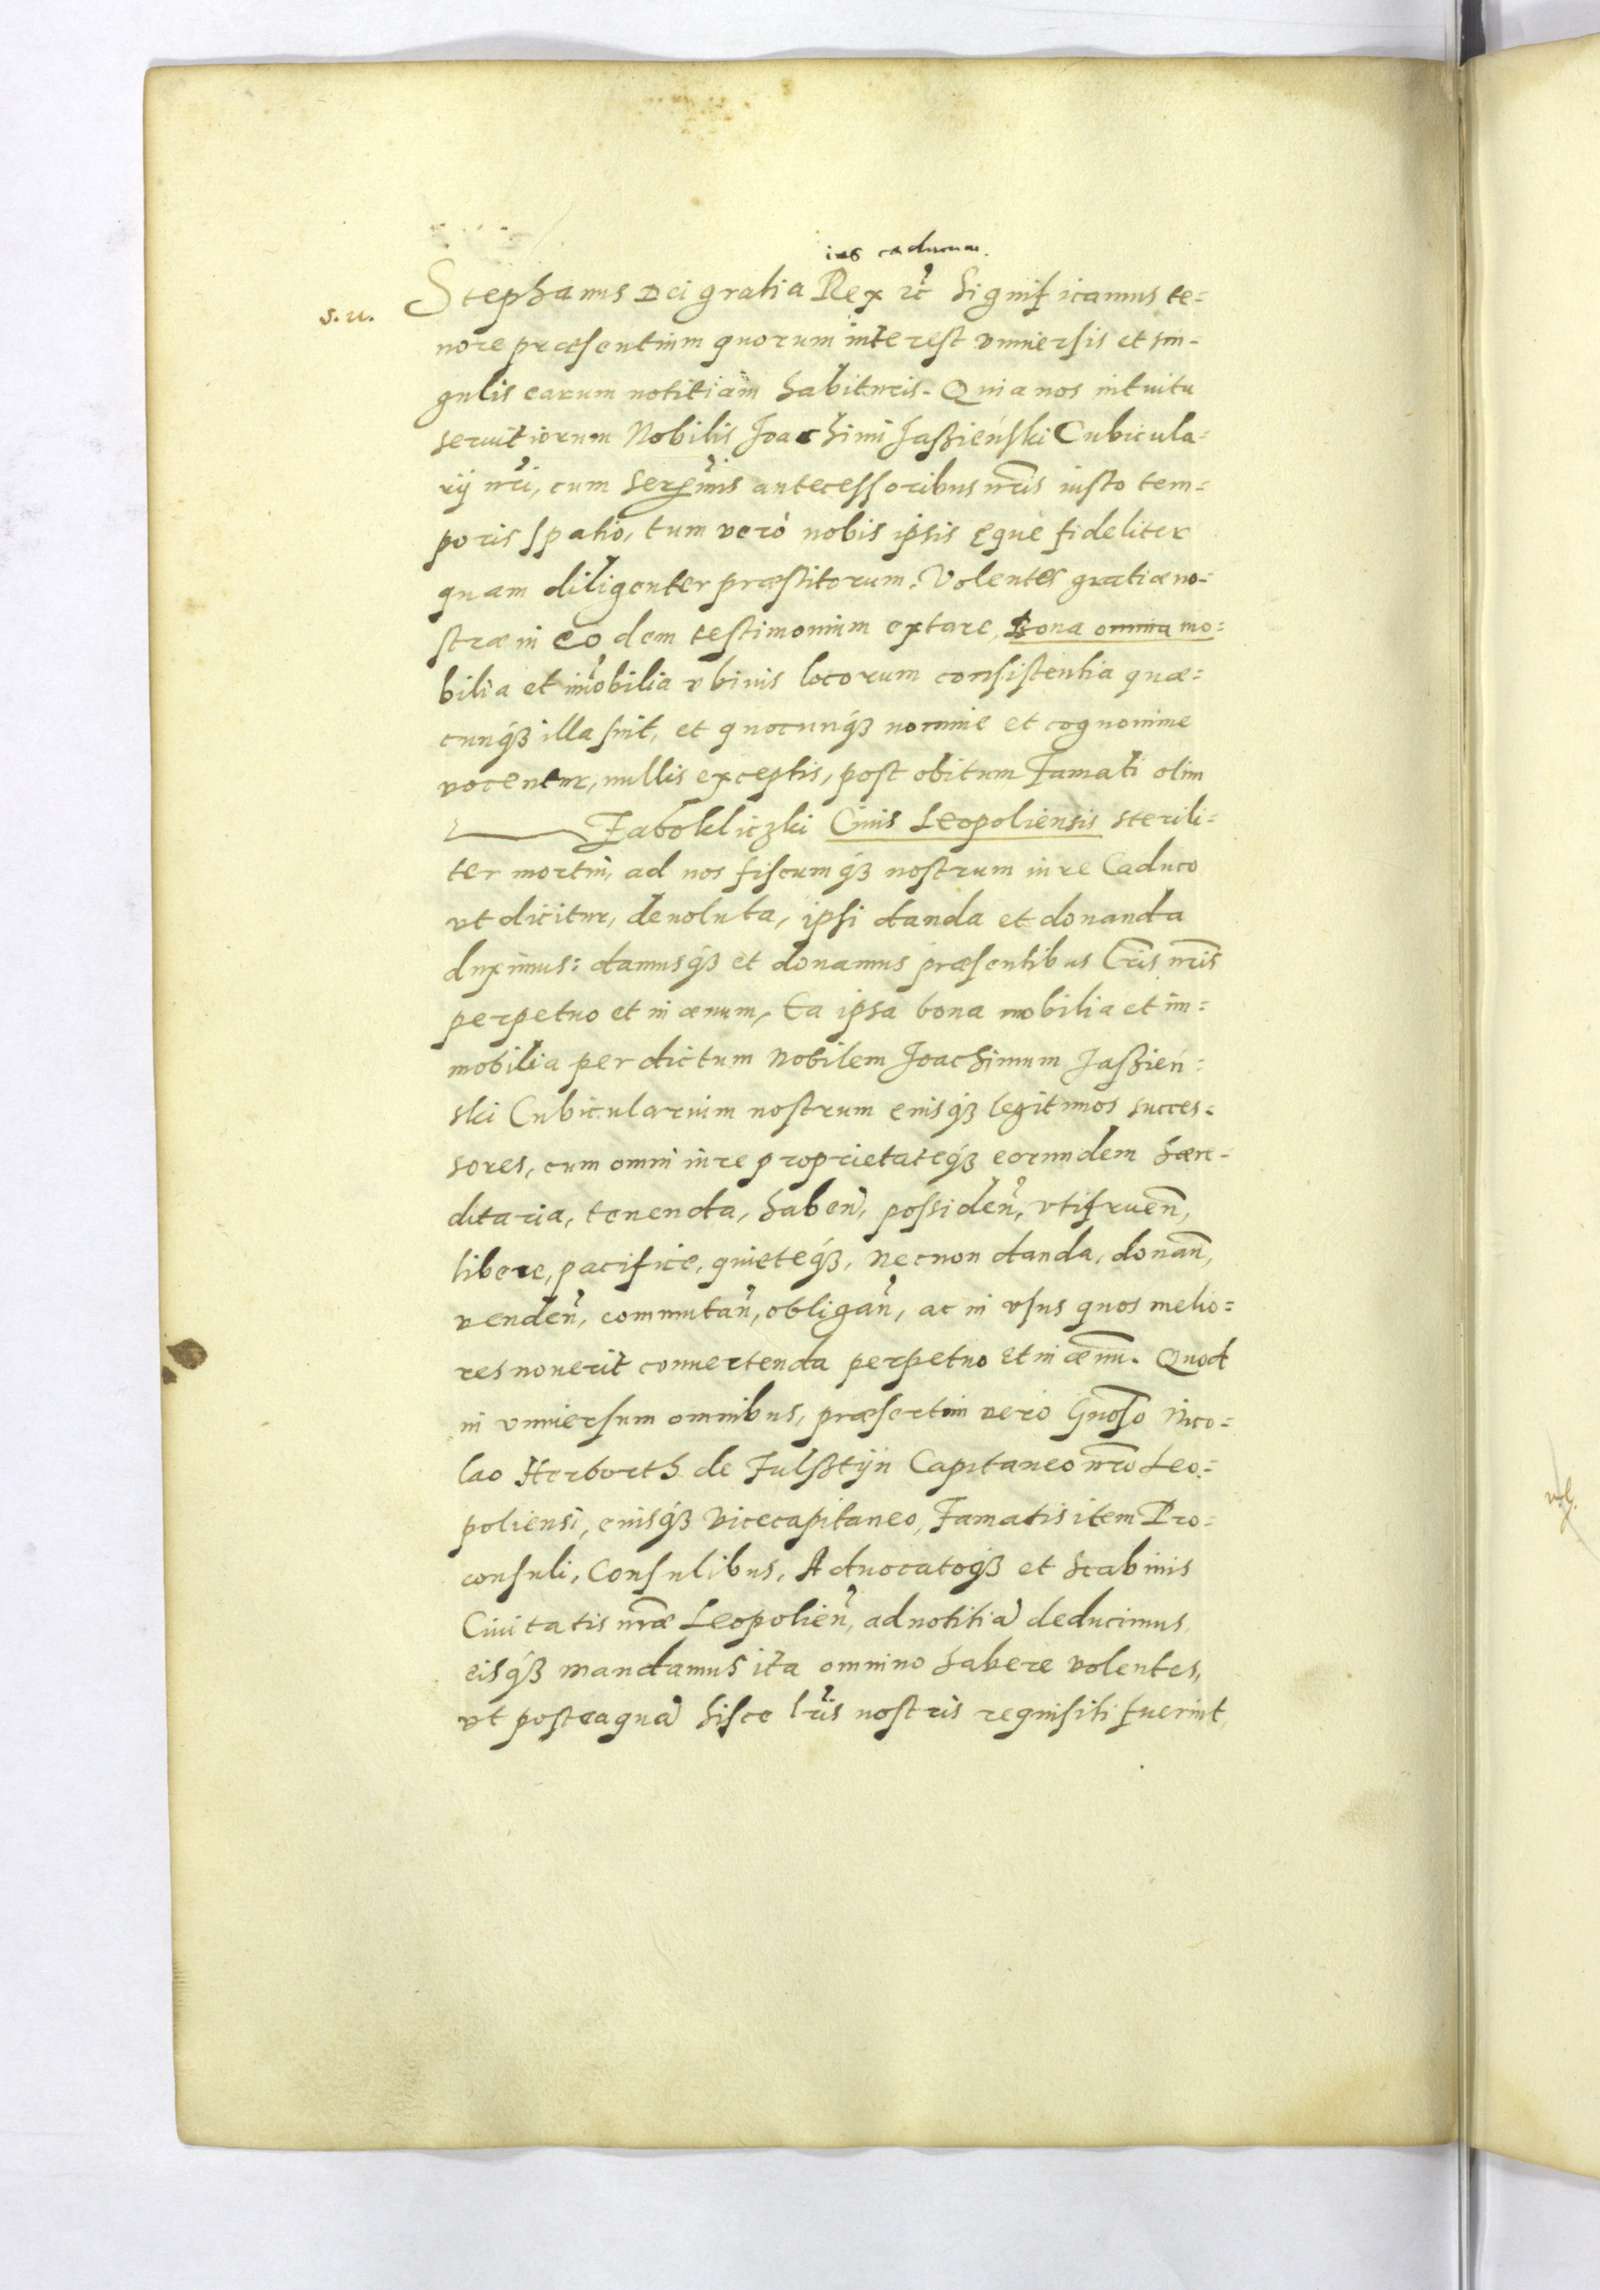 ius caducum.
s. u.
Stephanus Dei gratia Rex etc̃ Significamus te=
nore præsentium quorum interest vniuersis et sin-
gulis earum notitiam habituris. Quia nos intuitu
seruitiorum Nobilis Joachimi Jaßieński Cubicula=
rij nr̃i, cum Serenĩmis antecessoribus nr̃is iusto tem=
poris spatio, tum verò nobis ipsis ęquè fideliter
quam diligenter præstitorum: Volentes gratiæ no-
stræ in eodem testimonium extare, Bona omnia mo=
bilia et im̃obilia vbiuis locorum consistentia quæ=
cunqꝫ illa sint, et quocunqꝫ nomine et cognomine
vocentur, nullis exceptis, post obitum Famati olim
Zabokliczki Ciuis Leopoliensis sterili=
ter mortui, ad nos fiscumqꝫ nostrum iure Caduco
vt dicitur, deuoluta, ipsi danda et donanda
duximus: damusqꝫ et donamus præsentibus Lr̃is nr̃is
perpetuo et in æuum, Ea ipsa bona mobilia et im=
mobilia per dictum Nobilem Joachimum Jaßień=
ski Cubicularium nostrum eiusqꝫ legitimos succes=
sores, cum omni iure proprietateqꝫ eorundem hære-
ditaria, tenenda, habeñ, possideñ, vtifruen̄,
libere, pacifice, quieteqꝫ, Necnon danda, donan̄,
venden̄, commutan̄, obligan̄, ac in vsus quos melio=
res nouerit conuertenda perpetuo et in æuū. Quod
in vniuersum omnibus, præsertim vero Gnõso Nico=
lao Herborth de Fulßtijn Capitaneo nr̃o Leo=
poliensi, eiusqꝫ Vicecapitaneo, Famatis item Pro=
consuli, Consulibus, Aduocatoqꝫ et Scabinis
Ciuitatis nr̃æ Leopolien̄, ad notitiã deducimus,
eisqꝫ mandamus ita omnino habere volentes,
vt posteaquã hisce lr̃is nostris requisiti fuerint,